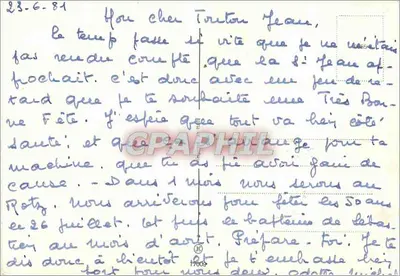 23-6-81
Mon cher Tonton Jean,
Le temps passe si vite que je ne m'étais
pas rendu compte que la St Jean ap-
prochait. C'est donc avec un peu de re-
tard que je te souhaite une Très Bon-
ne Fête. J'espère que tout va bien côté
santé; et que s'arrange pour ta
machine. que tu as pu avoir gain de
cause. - Dans 1 mois nous serons au
nous arriverons pour fêter les 50 ans
le 26 juillet. et puis le baptême de Sébas-
tien au mois d'août. Prépare-toi. Je te
dis donc à bientôt et je t'embrasse bien
fort pour nous deux.
GRAPHIL